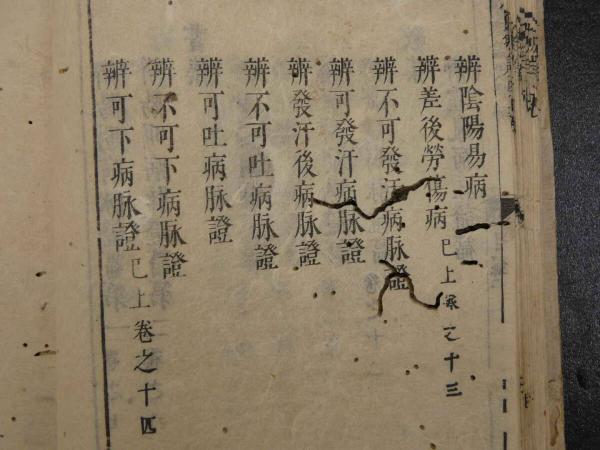 辨陰陽易病
辨差後勞傷病 巳上卷之十三
辨不可發汗病脉證
辨可發汗病脉證
辨發汗後病脉證
辨不可吐病脉證
辨可吐病脉證
辨不可下病脉證
辨可下病脉證 巳上卷之十四